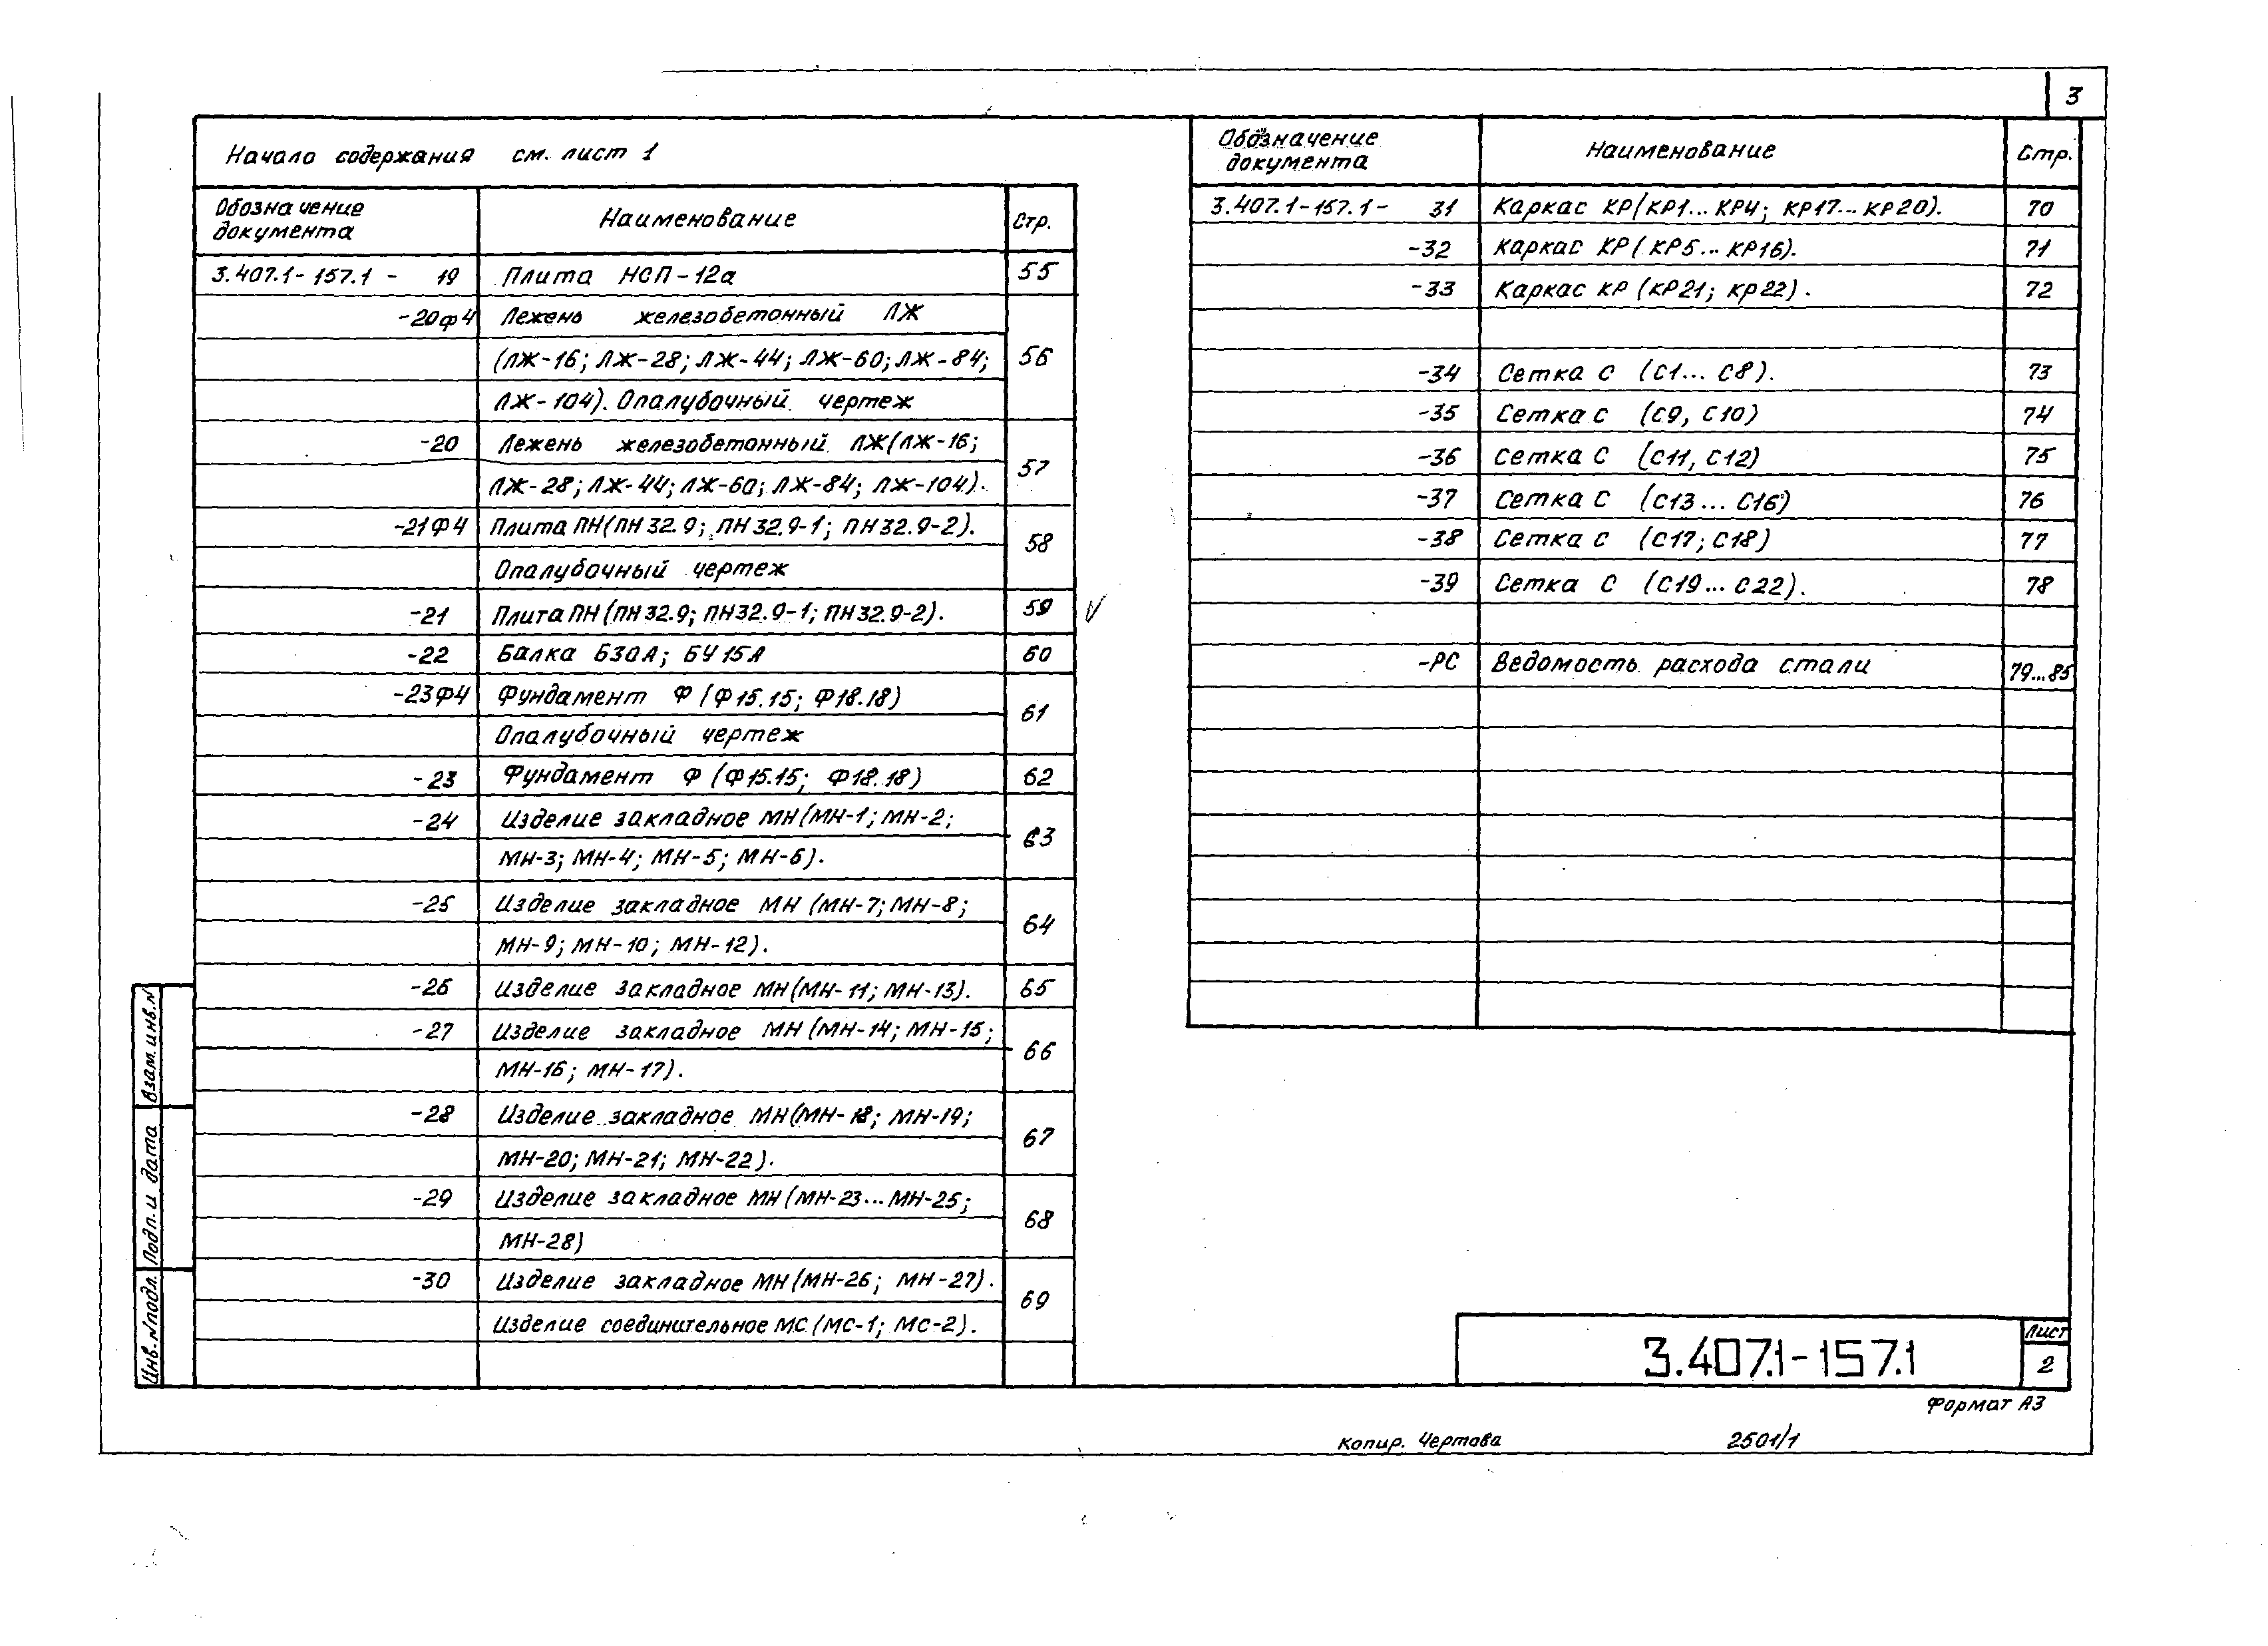 3
Начало содержания см. лист 1
Обозначение документа Наименование Стр.
3.407.1-157.1 - 19 Плита НСП-12а 55
-20ф4 Лежень железобетонный ЛЖ
(ЛЖ-16; ЛЖ-28; ЛЖ-44; ЛЖ-60; ЛЖ-84; 56
ЛЖ-104). Опалубочный чертеж
-20 Лежень железобетонный ЛЖ(ЛЖ-16;
ЛЖ-28; ЛЖ-44; ЛЖ-60; ЛЖ-84; ЛЖ-104). 57
-21Ф4 Плита ПН(ПН32.9; ПН32.9-1; ПН32.9-2).
Опалубочный чертеж 58
-21 Плита ПН(ПН32.9; ПН32.9-1; ПН32.9-2). 59
-22 Балка Б30А; БУ15А 60
-23Ф4 Фундамент Ф (Ф15.15; Ф18.18)
Опалубочный чертеж 61
-23 Фундамент Ф (Ф15.15; Ф18.18) 62
-24 Изделие закладное МН(МН-1; МН-2;
МН-3; МН-4; МН-5; МН-6). 63
-25 Изделие закладное МН (МН-7; МН-8;
МН-9; МН-10; МН-12). 64
-26 Изделие закладное МН(МН-11; МН-13). 65
-27 Изделие закладное МН (МН-14; МН-15;
МН-16; МН-17). 66
-28 Изделие закладное МН(МН-18; МН-19;
МН-20; МН-21; МН-22). 67
-29 Изделие закладное МН (МН-23...МН-25;
МН-28) 68
-30 Изделие закладное МН(МН-26; МН-27).
Изделие соединительное МС (МС-1; МС-2). 69
Обозначение документа Наименование Стр.
3.407.1-157.1- 31 Каркас КР(КР1...КР4; КР17...КР20). 70
-32 Каркас КР(КР5...КР16). 71
-33 Каркас КР (КР21; КР22). 72
-34 Сетка С (С1...С8). 73
-35 Сетка С (С9, С10) 74
-36 Сетка С (С11, С12) 75
-37 Сетка С (С13...С16) 76
-38 Сетка С (С17; С18) 77
-39 Сетка С (С19...С22). 78
-РС Ведомость расхода стали 79...85
Взам.инв.N
Подп. и дата
Инв.Nподл.
3.407.1-157.1
Лист
2
Формат А3
Копир. Чертова 2501/1